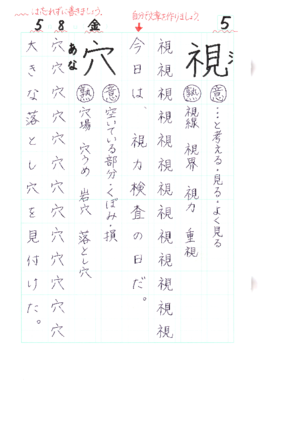 5
自分で文章を作りましょう。
視
意 …と考える・見る・よく見る
熟 視線 視界 視力 重視
視視視視視視視視視視
今日は、視力検査の日だ。
はみ出さずに書きましょう。
5 8 金
穴
あな
意 空いている部分・くぼみ・損
熟 穴場 穴うめ 岩穴 落とし穴
穴穴穴穴穴穴穴穴穴穴
大きな落とし穴を見付けた。